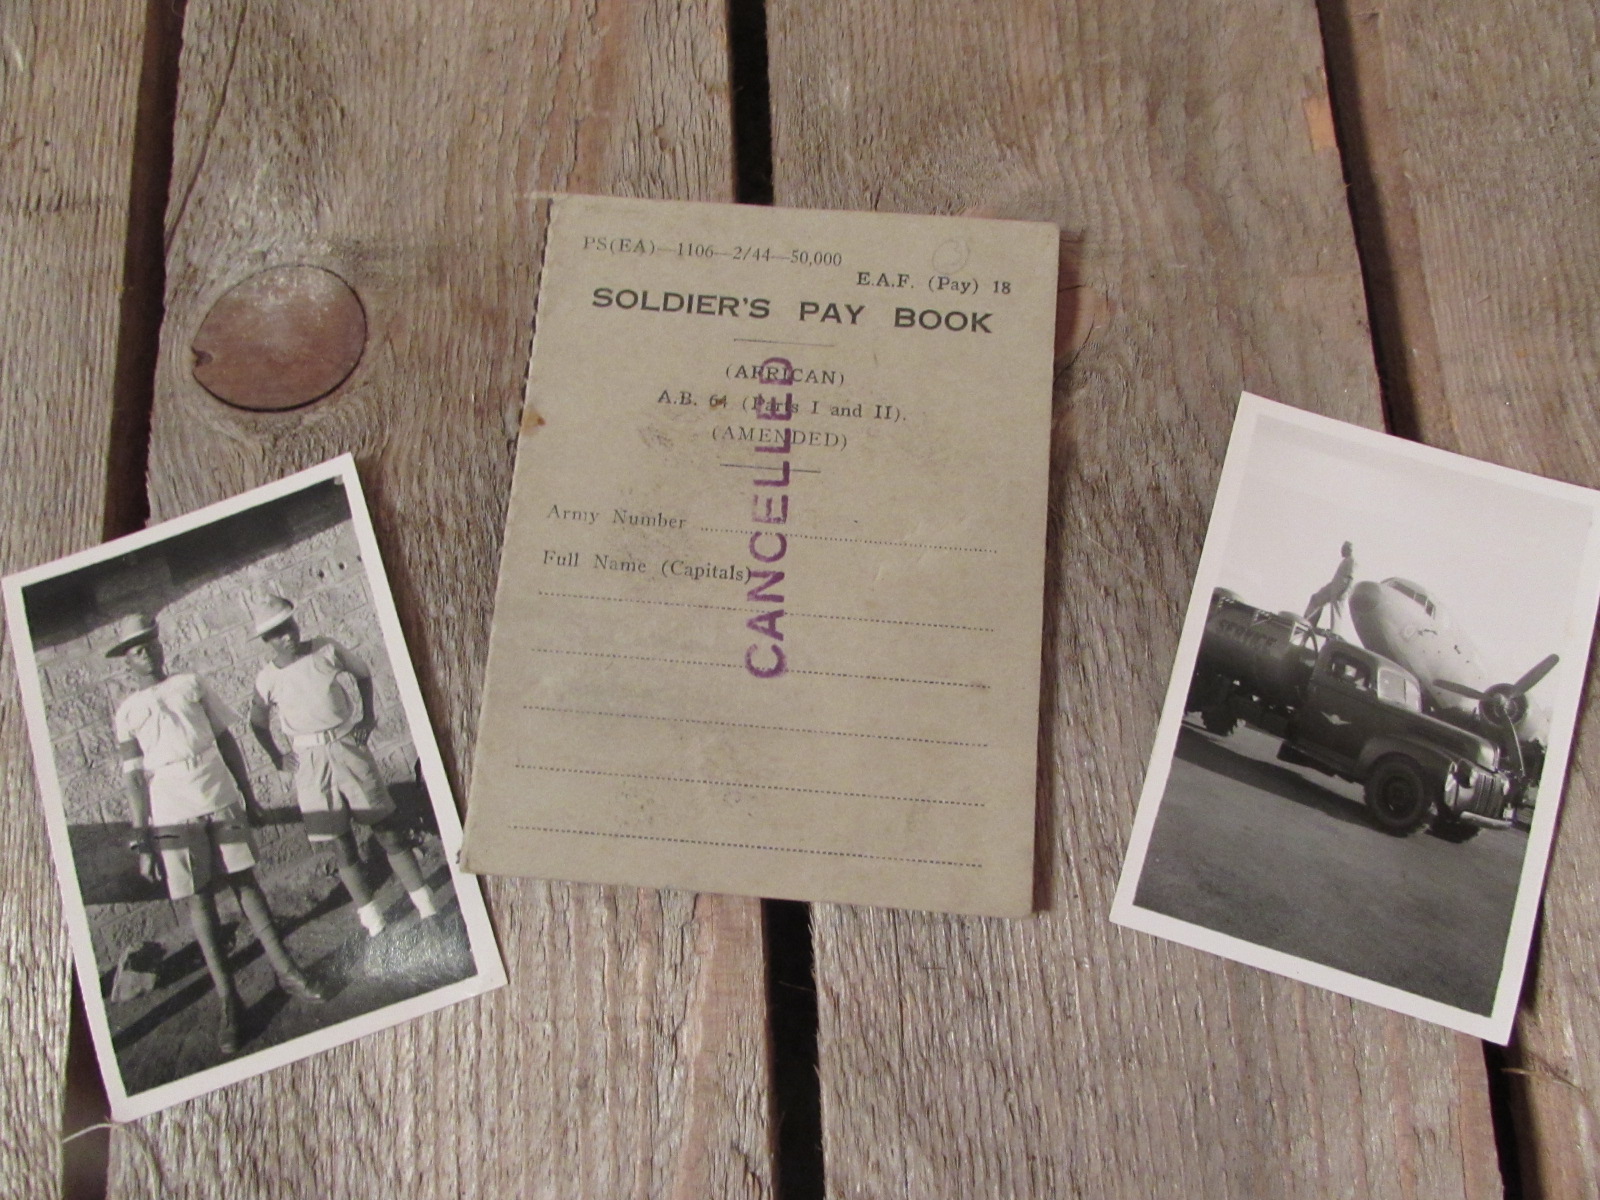 PS(EA)—1106—2/44—50,000
E.A.F. (Pay) 18
SOLDIER'S PAY BOOK
(AFRICAN)
A.B. 64 (Parts I and II).
(AMENDED)
Army Number
Full Name (Capitals)
CANCELLED
SERVICE